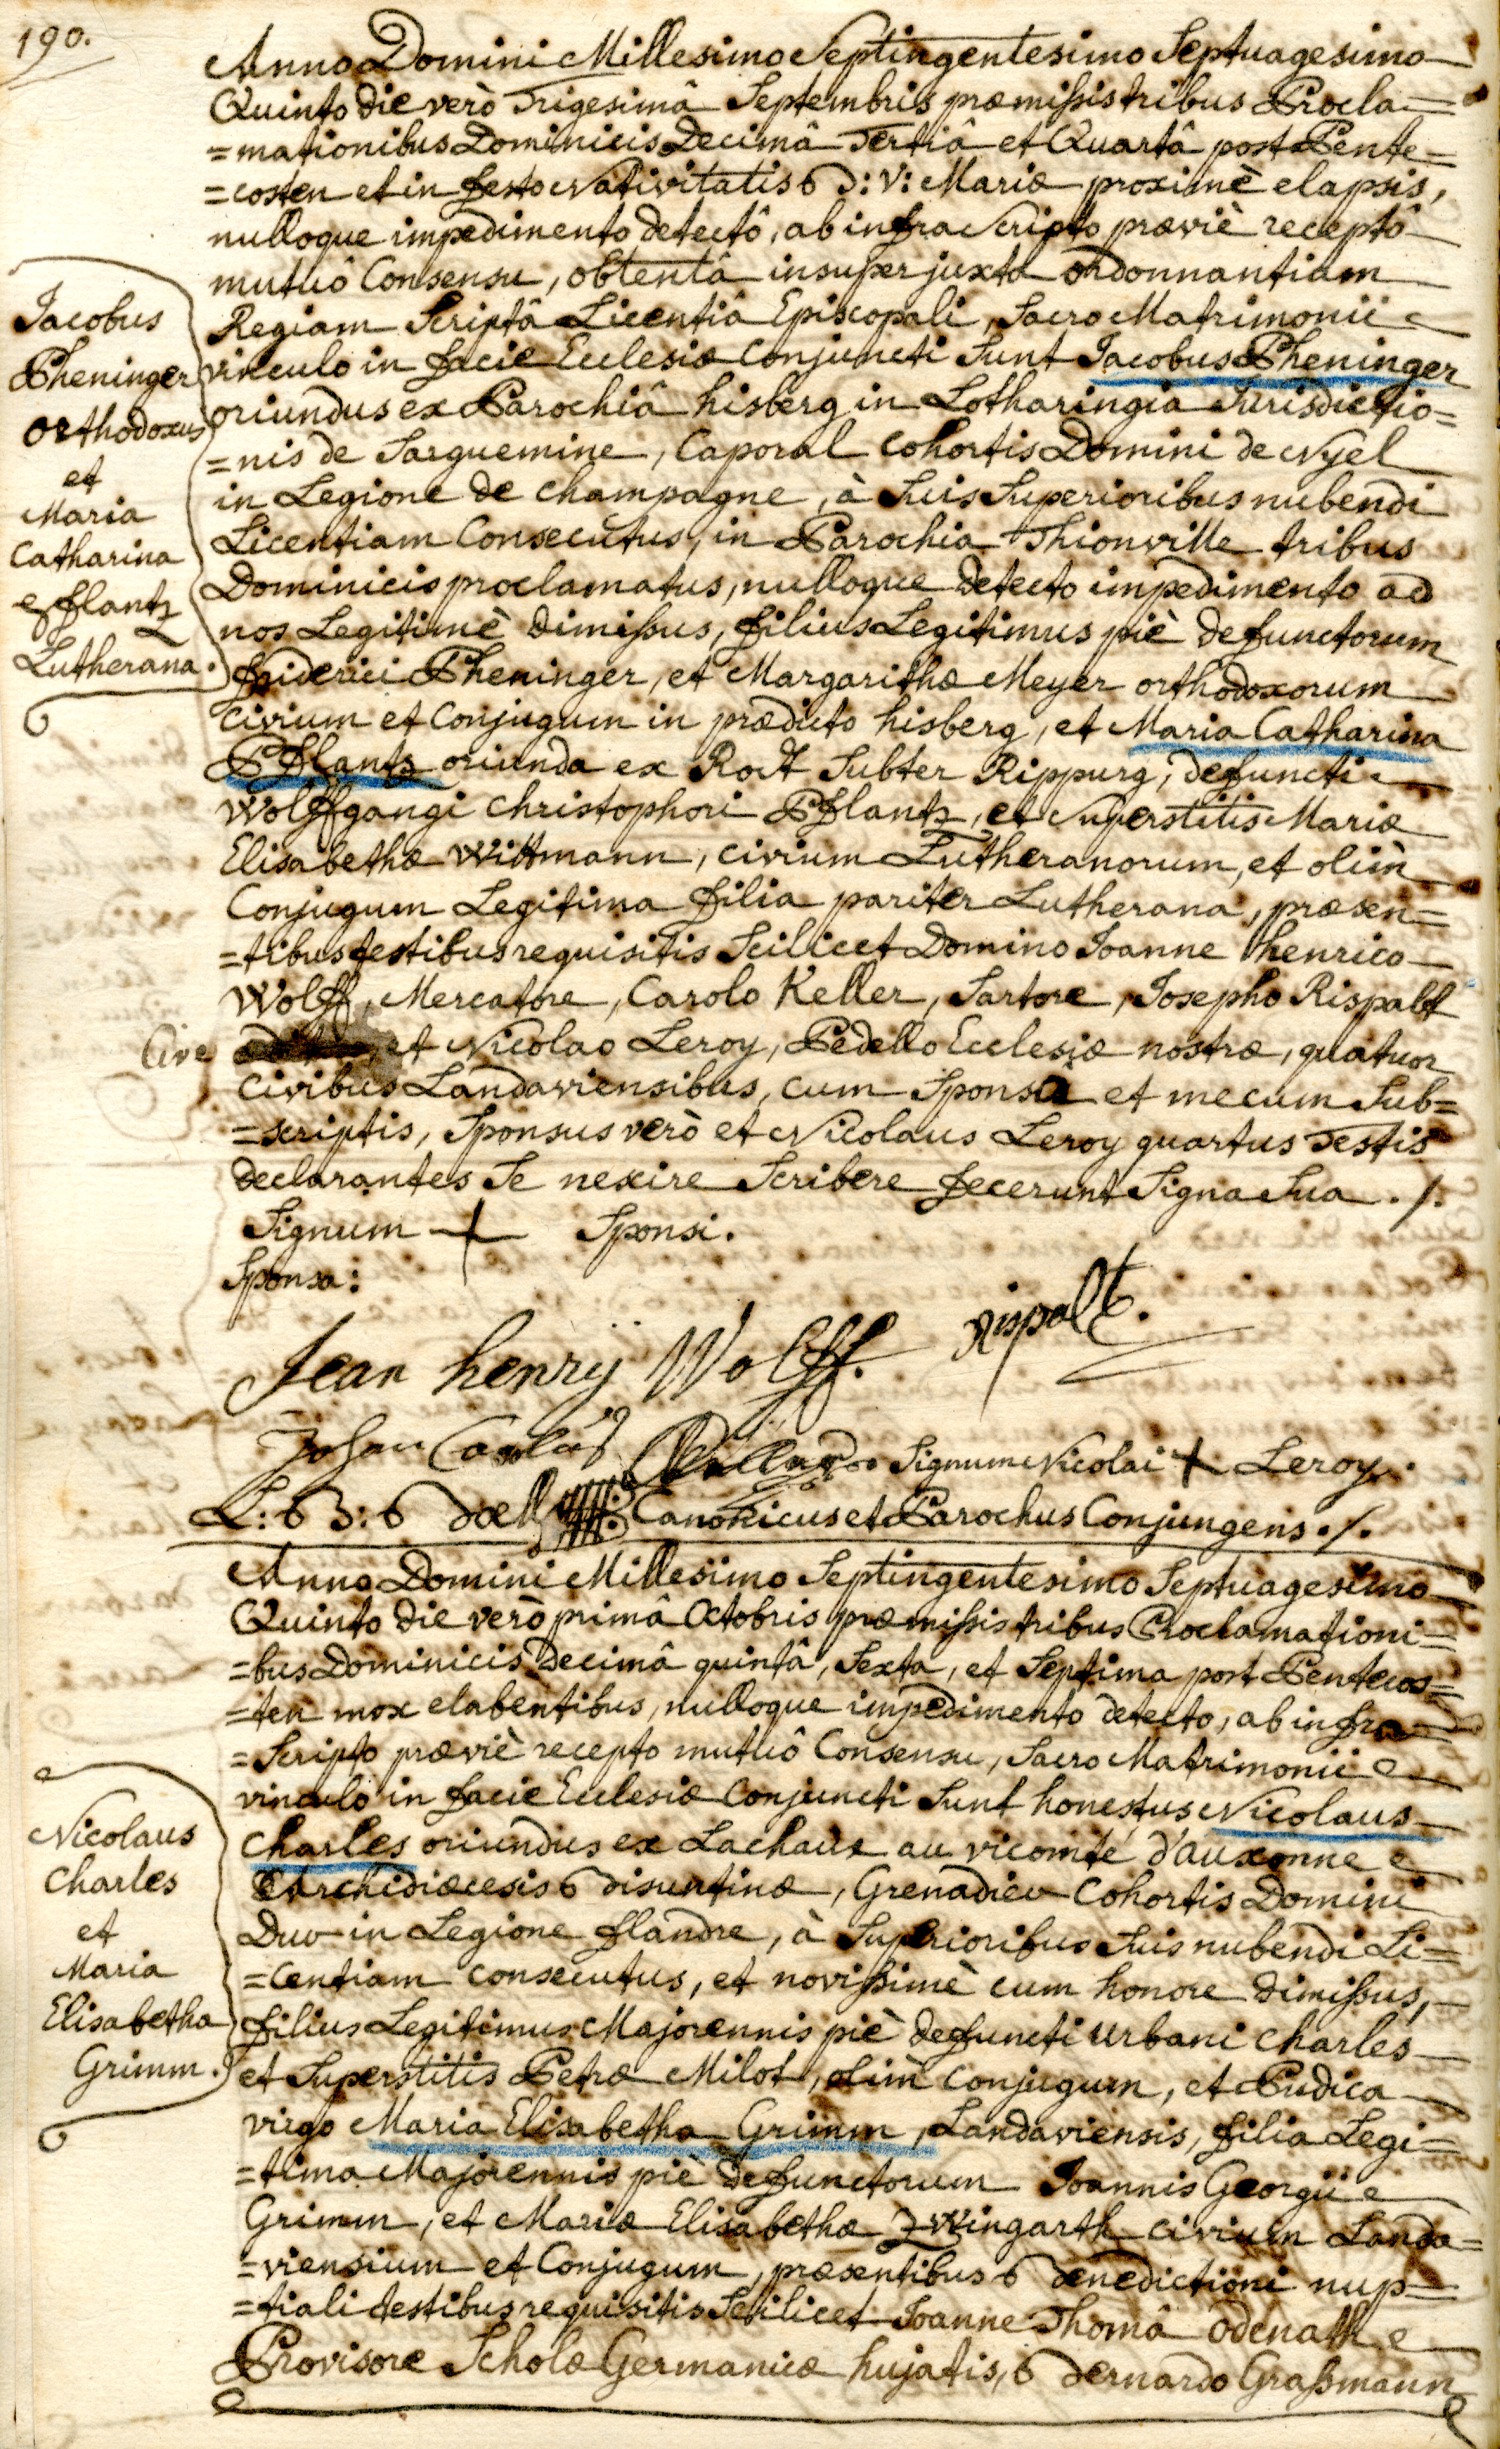 190.
Anno Domini Millesimo Septingentesimo Septuagesimo
Quinto die verò Trigesimâ Septembris præmissis tribus Procla=
=mationibus Dominicis Decimâ Tertiâ et Quartâ post Pente=
=costen et in festo Nativitatis B: V: Mariæ proximè elapsis,
nulloque impedimento detectô, ab infra Scripto præviè receptô
mutuô Consensu, obtentâ insuper juxta ordonnantiam
Regiam Scriptâ Licentiâ Episcopali, Sacro Matrimonii
vinculo in facie Ecclesiæ Conjuncti Sunt Jacobus Pheninger
oriundus ex Parochiâ hisberg in Lotharingia Jurisdictio=
=nis de Sarguemine, Caporal Cohortis Domini de Nyel
in Legione de Champagne, à Suis Superioribus nubendi
Licentiam Consecutus, in Parochia Thionville tribus
Dominicis proclamatus, nulloque detecto impedimento ad
nos Legitimè dimissus, filius Legitimus piè defunctorum
friderici Pheninger, et Margarithæ Meyer orthodoxorum
civium et Conjugum in prædicto hisberg, et Maria Catharina
Pflantz oriunda ex Rodt Subter Rippurg, defuncti
Wolffgangi Christophori Pflantz, et Superstitis Mariæ
Elisabethæ Wittmann, civium Lutheranorum, et olim
Conjugum Legitima filia pariter Lutherana, præsen=
=tibus testibus requisitis Scilicet Domino Joanne henrico
Wolff, Mercatore, Carolo Keller, Sartore, Josepho Rispalt
Cive et Nicolao Leroy, Pedello Ecclesiæ nostræ, quatuor
civibus Landaviensibus, cum Sponsa et mecum Sub=
=scriptis, Sponsus verò et Nicolaus Leroy quartus Testis
declarantes Se nescire Scribere fecerunt Signa Sua ./.
Signum + Sponsi.
Sponsa:
Jacobus
Pheninger
orthodoxus
et
Maria
Catharina
Pflantz
Lutherana.
Rispalt.
Jean henry Wolff.
Johan Carolus Signum Nicolai + Leroy.
Canonicus et Parochus Conjungens ./.
Anno Domini Millesimo Septingentesimo Septuagesimo
Quinto die verò primâ Octobris præmissis tribus Proclamationi=
=bus Dominicis Decimâ quintâ, Sexta, et Septima post Pentecos=
=ten mox elabentibus, nulloque impedimento detecto, ab infra=
=Scripto præviè recepto mutuô Consensu, Sacro Matrimonii
vinculo in facie Ecclesiæ Conjuncti Sunt honestus Nicolaus
Charles oriundus ex Lachaux au vicomté d'auxonne
Archidiœcesis Bisuntinæ, Grenadier Cohortis Domini
Duv in Legione flandre, à Superioribus Suis nubendi Li=
=centiam consecutus, et novissimè cum honore dimissus,
filius Legitimus Majorennis piè defuncti urbani Charles
et Superstitis Petræ Milot, olim Conjugum, et Pudica
virgo Maria Elisabetha Grimm, Landaviensis, filia Legi=
=tima Majorennis piè defunctorum Joannis Georgii
Grimm, et Mariæ Elisabethæ Zwingarth civium Landa=
=viensium et Conjugum, præsentibus Benedictioni nup=
=tiali testibus requisitis Scilicet Joanne Thomâ Odenath
Provisore Scholæ Germanicæ hujatis, Bernardo Grassmann
Nicolaus
Charles
et
Maria
Elisabetha
Grimm.